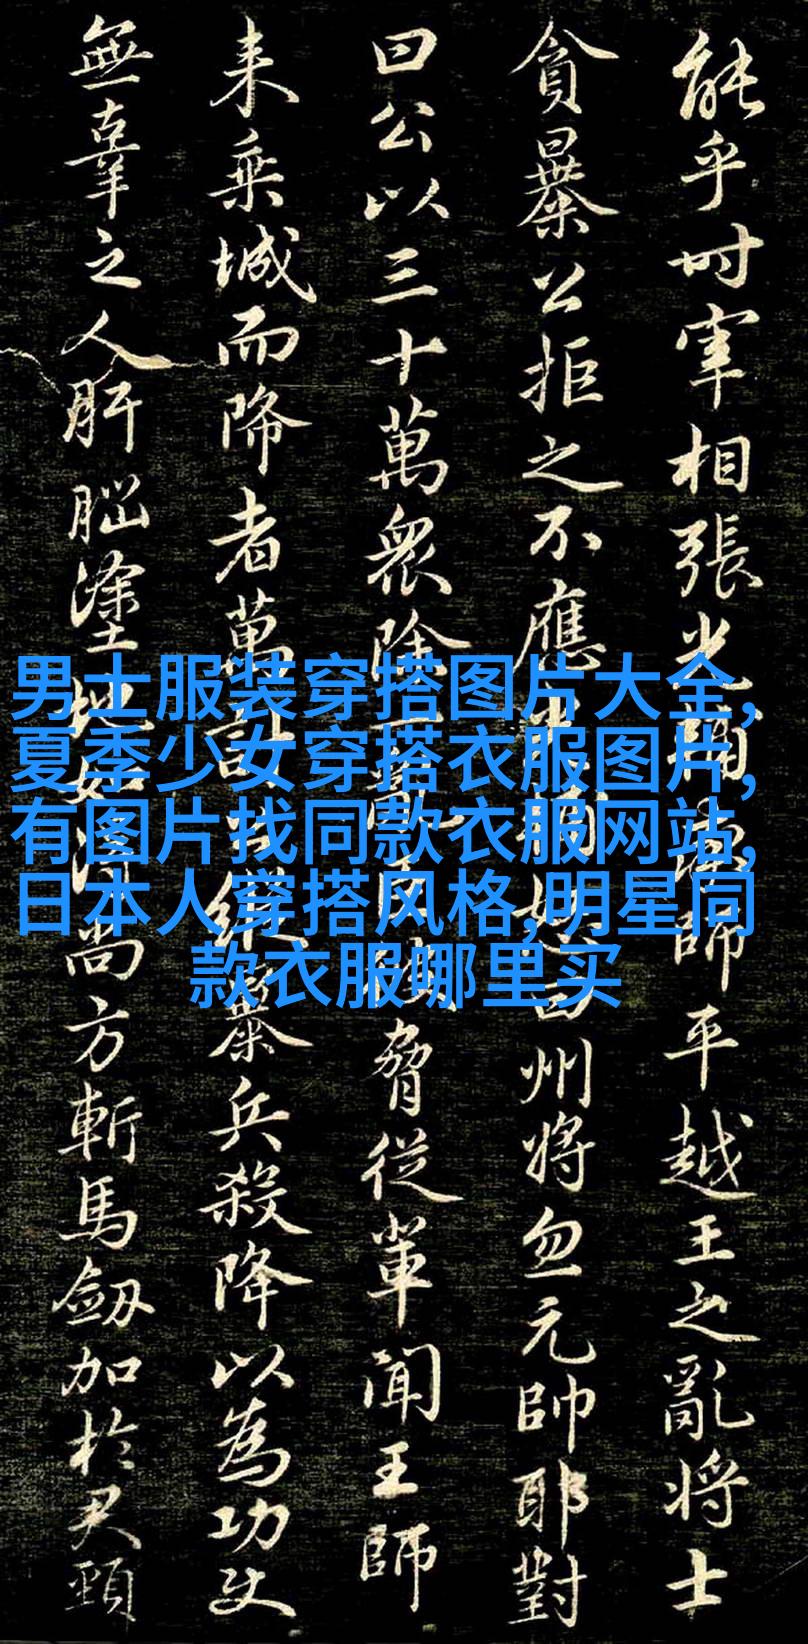 能乎时宰相張光師平越王之亂将士
貪暴公拒之不應怒曰州将忽元帥耶對
曰公以三十萬衆除一亂臣脅從輩聞王師
来乘城而降者萬計縱暴兵殺降以為功使
無辜之人肝脳塗地如得尚方斬馬劒加於君頸
男士服装穿搭图片大全,
夏季少女穿搭衣服图片,
有图片找同款衣服网站,
日本人穿搭风格,明星同
款衣服哪里买